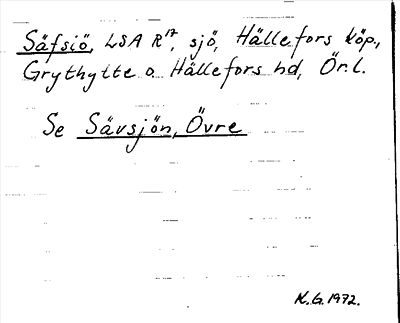 Säfsiö, LSA R17, sjö, Hällefors köp.,
Grythytte o. Hällefors hd, Ör.l.
Se Sävsjön, Övre
K.G. 1972.